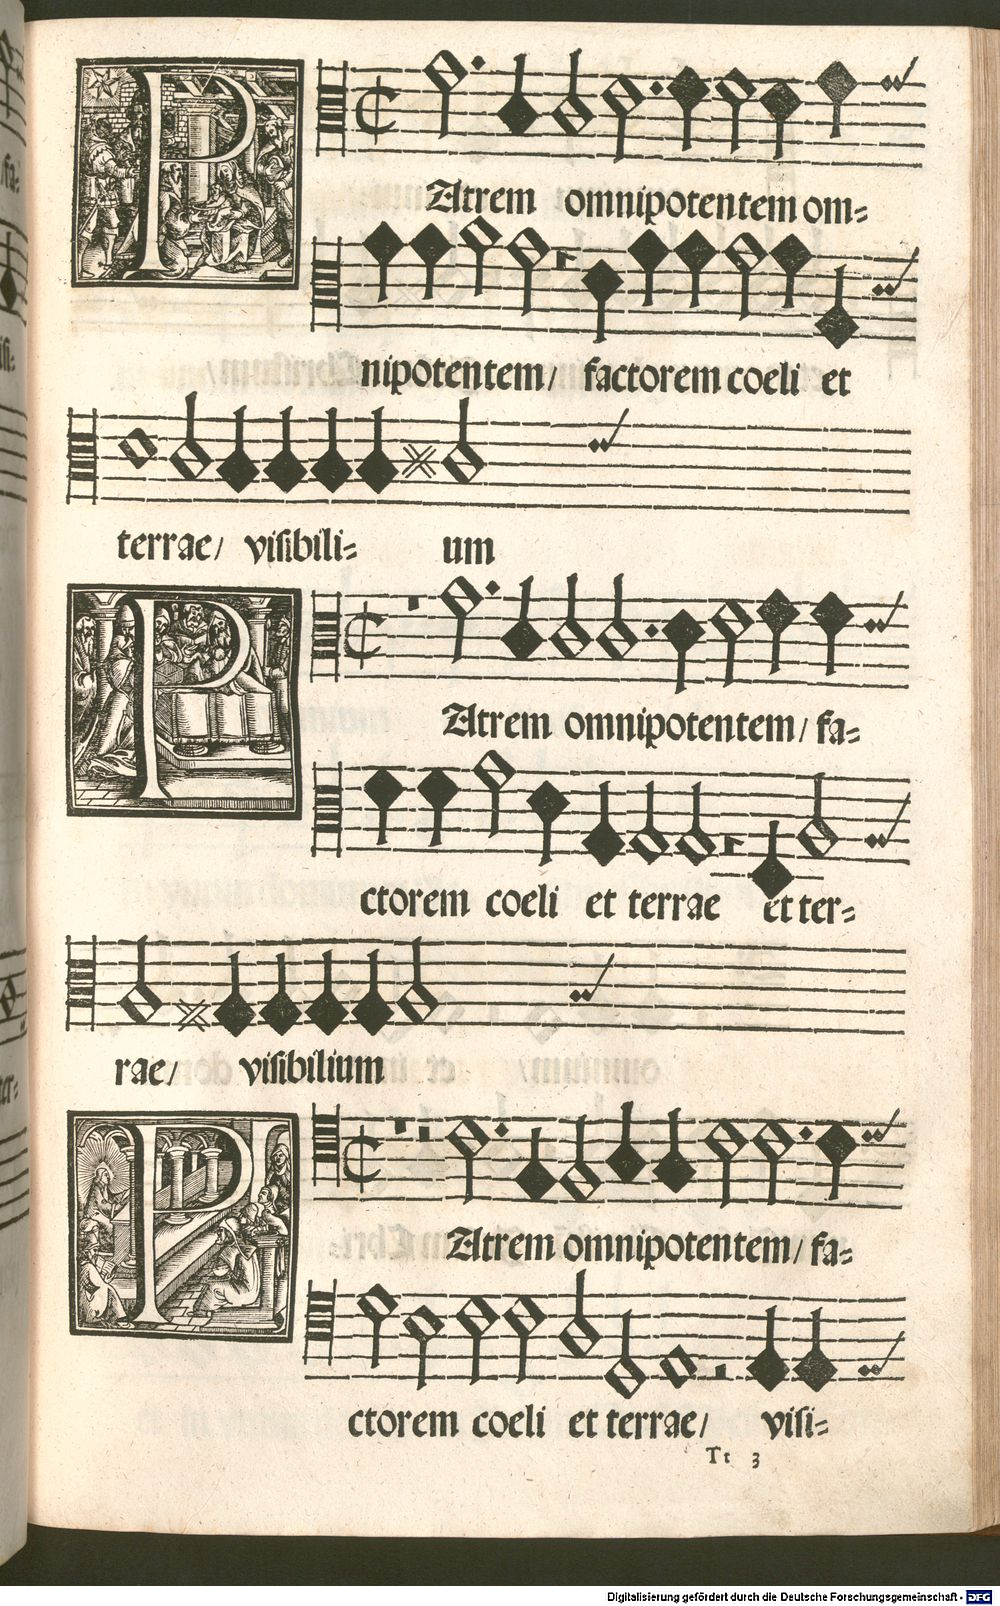 PAtrem omnipotentem om=
nipotentem/ factorem coeli et
terrae/ visibili= um
PAtrem omnipotentem/ fa=
ctorem coeli et terrae et ter=
rae/ visibilium
PAtrem omnipotentem/ fa=
ctorem coeli et terrae/ visi=
Tt 3
Digitalisierung gefördert durch die Deutsche Forschungsgemeinschaft - DFG